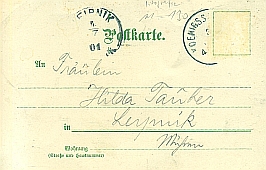 LEIPNIK
7
01
Postkarte.
An
Fräulein
Hilda Tauber
in Leipnik
Mähren
Wohnung
(Straße und Hausnummer)